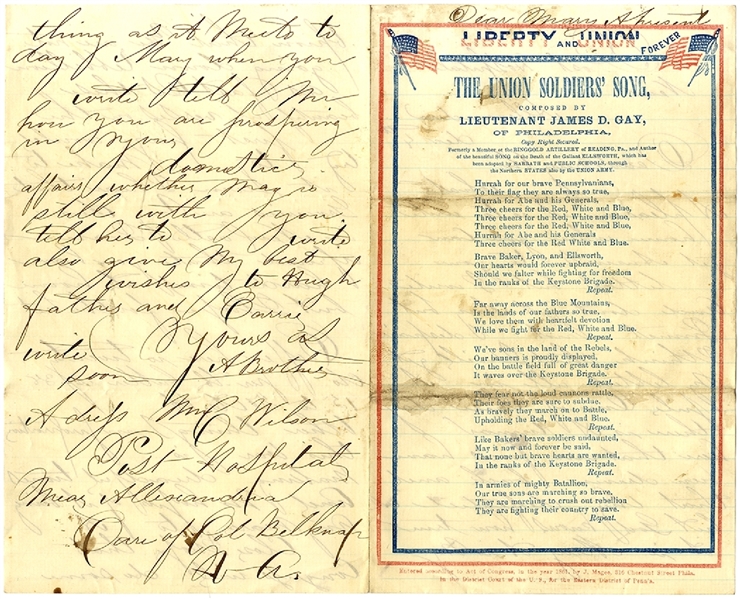 thing as it Meets to
day May when you
write tell Me
how you are prospering
in your
domestic
affairs whether Mag is
still with you
tell her to write
also give My best
wishes to Hugh
father and Carrie
Yours as
write
soon A Brother
Adress Wm C Wilson
Post Hospital
Near Allexandria
Care of Col Belknap
Dear Mary A present
LIBERTY AND UNION FOREVER
THE UNION SOLDIERS' SONG,
COMPOSED BY
LIEUTENANT JAMES D. GAY,
OF PHILADELPHIA,
Copy Right Secured.
Formerly a Member of the RINGGOLD ARTILLERY of READING, Pa., and Author
of the beautiful SONG on the Death of the Gallant ELLSWORTH, which has
been adopted by SABBATH and PUBLIC SCHOOLS, through
the Northern STATES also by the UNION ARMY.
Hurrah for our brave Pennsylvanians,
To their flag they are always so true,
Hurrah for Abe and his Generals,
Three cheers for the Red, White and Blue,
Three cheers for the Red, White and Blue,
Three cheers for the Red, White and Blue,
Hurrah for Abe and his Generals
Three cheers for the Red White and Blue.
Brave Baker, Lyon, and Ellsworth,
Our hearts would forever upbraid,
Should we falter while fighting for freedom
In the ranks of the Keystone Brigade.
Repeat.
Far away across the Blue Mountains,
Is the lands of our fathers so true,
We love them with heartfelt devotion
While we fight for the Red, White and Blue.
Repeat.
We've sons in the land of the Rebels,
Our banners is proudly displayed,
On the battle field full of great danger
It waves over the Keystone Brigade.
Repeat.
They fear not the loud cannons rattle,
Their foes they are sure to subdue,
As bravely they march on to Battle,
Upholding the Red, White and Blue.
Repeat.
Like Bakers' brave soldiers undaunted,
May it now and forever be said,
That none but brave hearts are wanted,
In the ranks of the Keystone Brigade.
Repeat.
In armies of mighty Batallion,
Our true sons are marching so brave,
They are marching to crush out rebellion
They are fighting their country to save.
Repeat.
Entered according to Act of Congress, in the year 1861, by J. Magee, 316 Chestnut Street Phila.
In the District Court of the U. S., for the Eastern District of Penn'a.